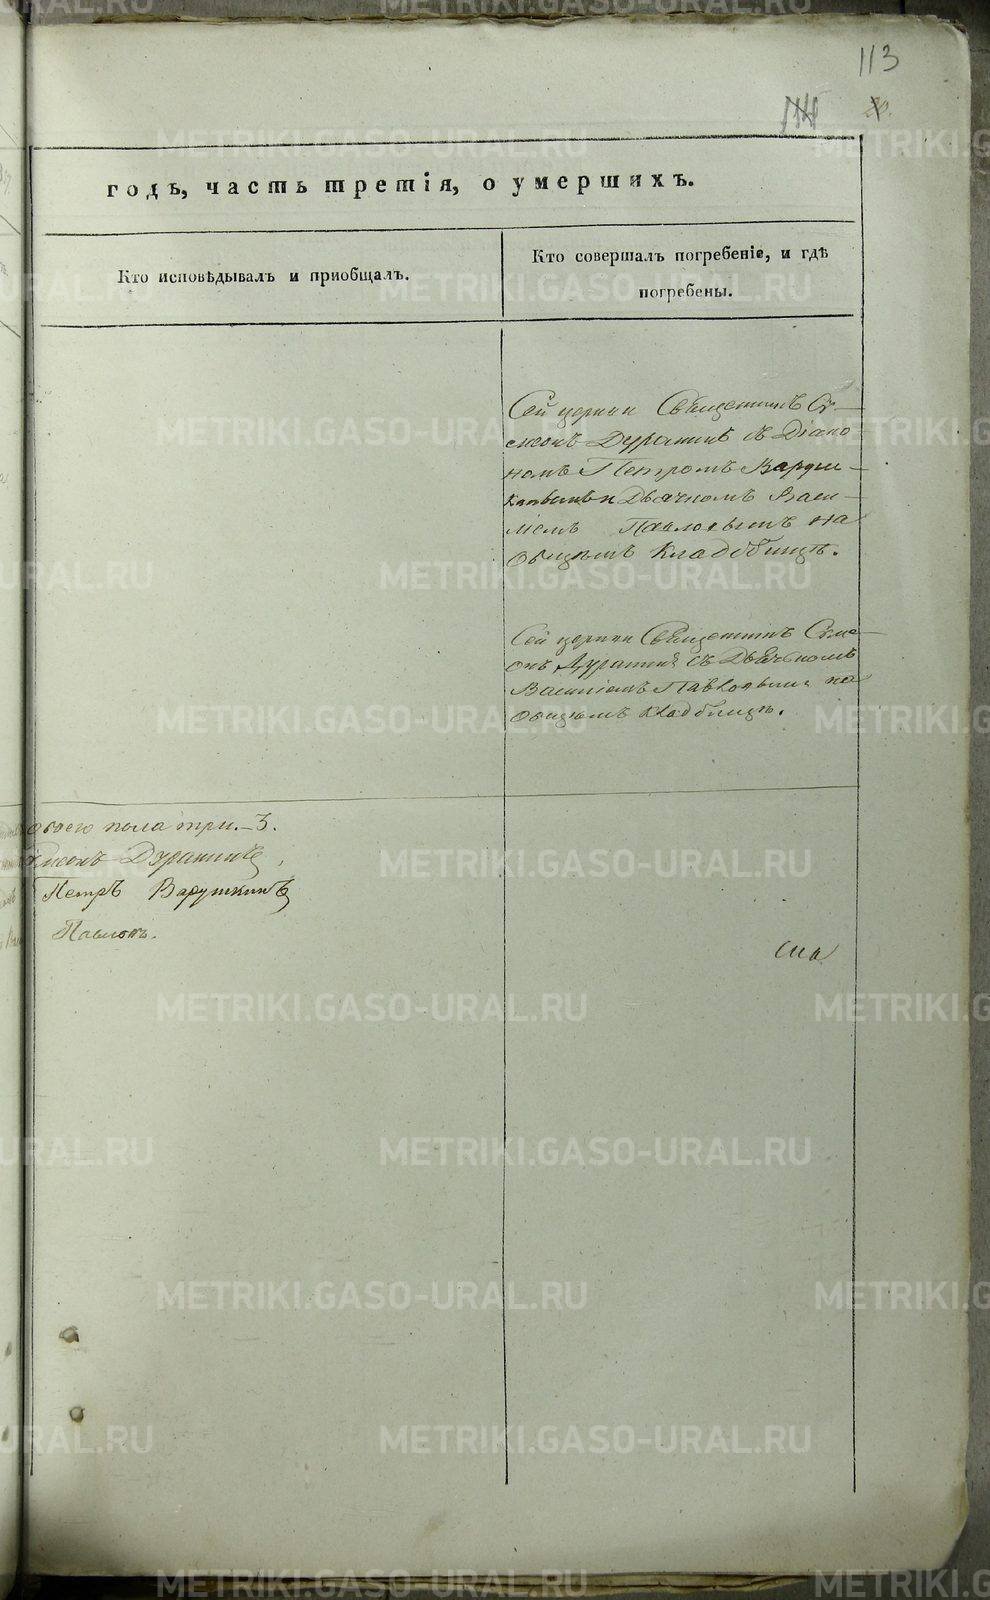 113
годъ, часть третія, о умершихъ.
Кто исповѣдывалъ и приобщалъ.
Кто совершалъ погребеніе, и гдѣ
погребены.
Сей церкви Священникъ Си-
меонъ Дуракинъ съ Діако-
номъ Петромъ Варуш-
кинымъ и Дьячкомъ Васи-
лиемъ Павловымъ на
Общемъ Кладбищѣ.
Сей церкви Священникъ Симе-
онъ съ Дьячкомъ
Василіемъ Павловымъ на
Общемъ Кладбищѣ.
обоего пола три. 3.
Петръ Варушкинъ
Павловъ.
METRIKI.GASO-URAL.RU